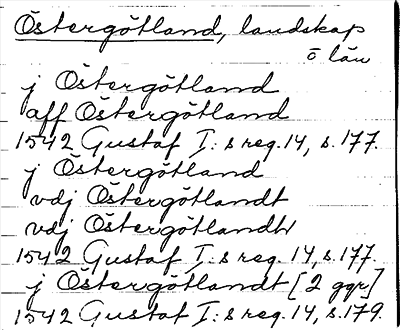 Östergötland, landskap
o län
j Östergötland
aff Östergötland
1542 Gustaf I:s reg. 14, s. 177.
j Östergötland
vdj Östergötlandt
vdj Östergötlandh
1542 Gustaf I:s reg. 14, s. 177.
j Östergötlandt [2 ggr]
1542 Gustaf I:s reg. 14, s. 179.